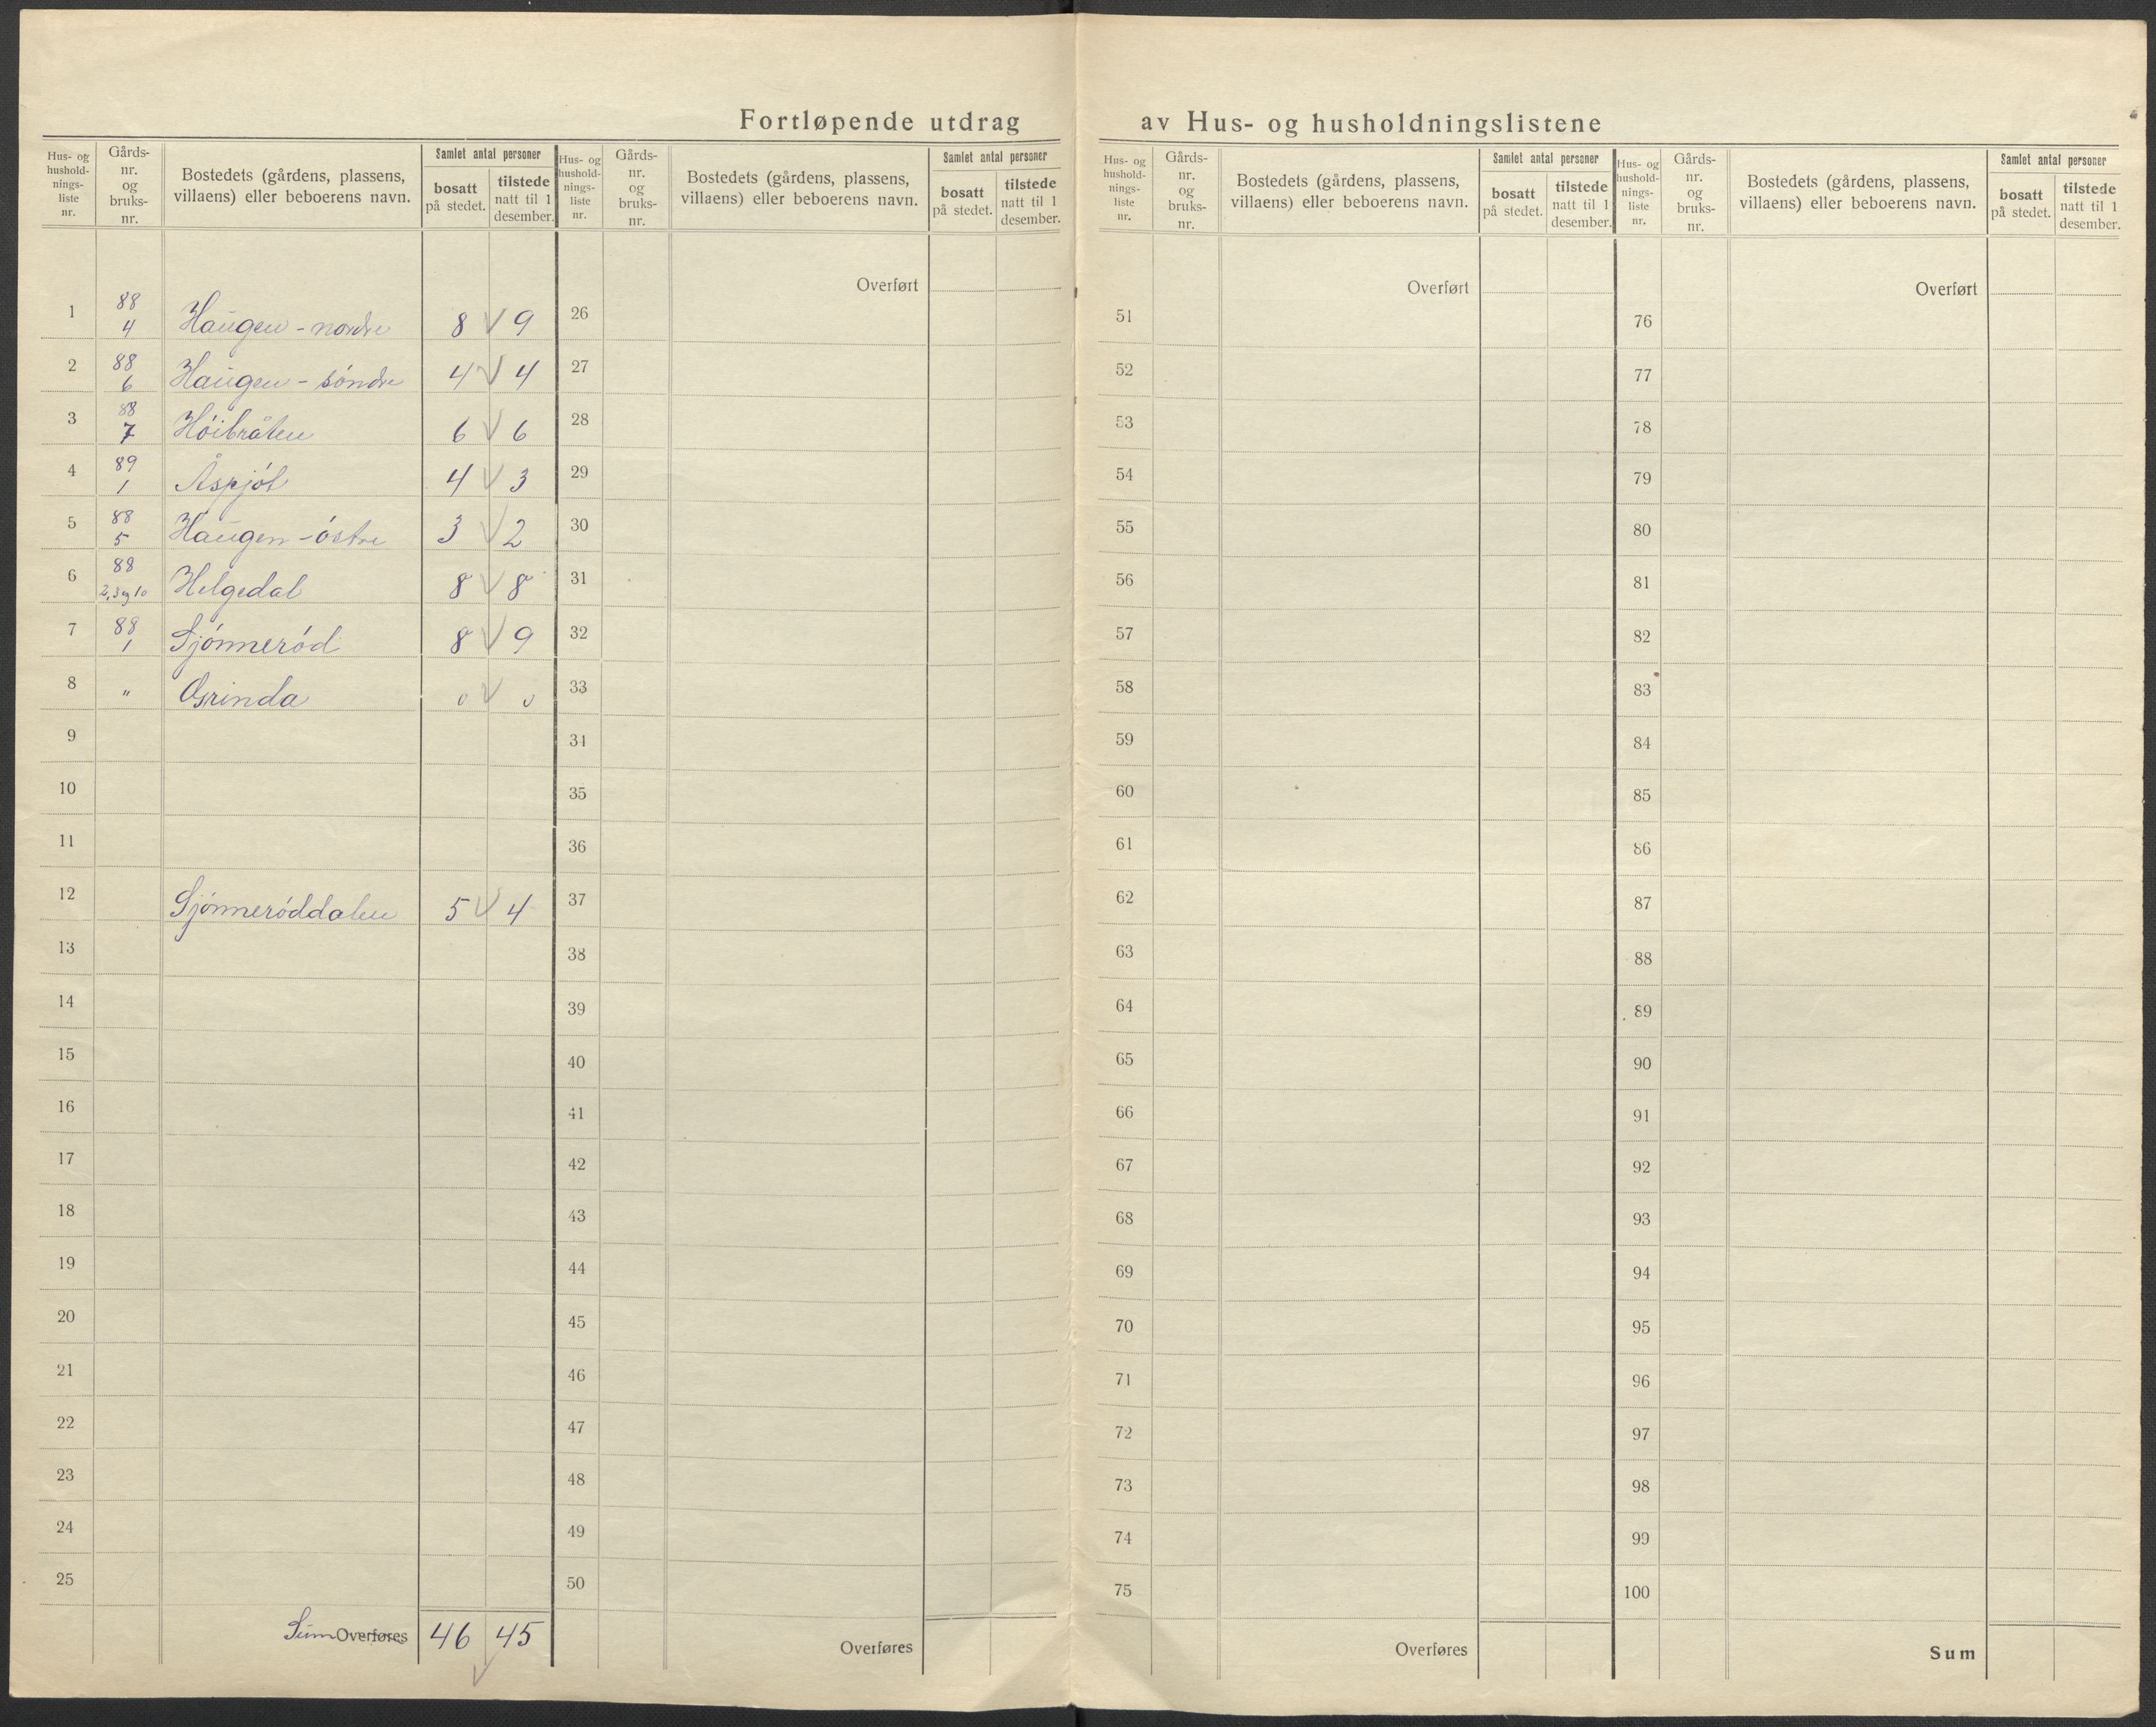 Fortløpende utdrag av Hus- og husholdningslistene
Hus- og hushold- nings- liste nr. Gårds- nr. og bruks- nr. Bostedets (gårdens, plassens, villaens) eller beboerens navn. Samlet antal personer bosatt på stedet. tilstede natt til 1 desember.
Hus- og hushold- nings- liste nr. Gårds- nr. og bruks- nr. Bostedets (gårdens, plassens, villaens) eller beboerens navn. Samlet antal personer bosatt på stedet. tilstede natt til 1 desember.
Hus- og hushold- nings- liste nr. Gårds- nr. og bruks- nr. Bostedets (gårdens, plassens, villaens) eller beboerens navn. Samlet antal personer bosatt på stedet. tilstede natt til 1 desember.
Hus- og hushold- nings- liste nr. Gårds- nr. og bruks- nr. Bostedets (gårdens, plassens, villaens) eller beboerens navn. Samlet antal personer bosatt på stedet. tilstede natt til 1 desember.
1 88 4 Haugen - nordre 8 9
2 88 6 Haugen - söndre 4 4
3 88 7 Höibråten 6 6
4 89 1 Åspjöl 4 3
5 88 5 Haugen - östre 3 2
6 88 2, 3 og 10 Helgedal 8 8
7 88 1 Sjönneröd 8 9
8 " Grinda 0 0
9
10
11
12 Sjönneröddalen 5 4
13
14
15
16
17
18
19
20
21
22
23
24
25
Sum Overføres 46 45
Overført
26
27
28
29
30
31
32
33
34
35
36
37
38
39
40
41
42
43
44
45
46
47
48
49
50
Overføres
Overført
51
52
53
54
55
56
57
58
59
60
61
62
63
64
65
66
67
68
69
70
71
72
73
74
75
Overføres
Overført
76
77
78
79
80
81
82
83
84
85
86
87
88
89
90
91
92
93
94
95
96
97
98
99
100
Sum